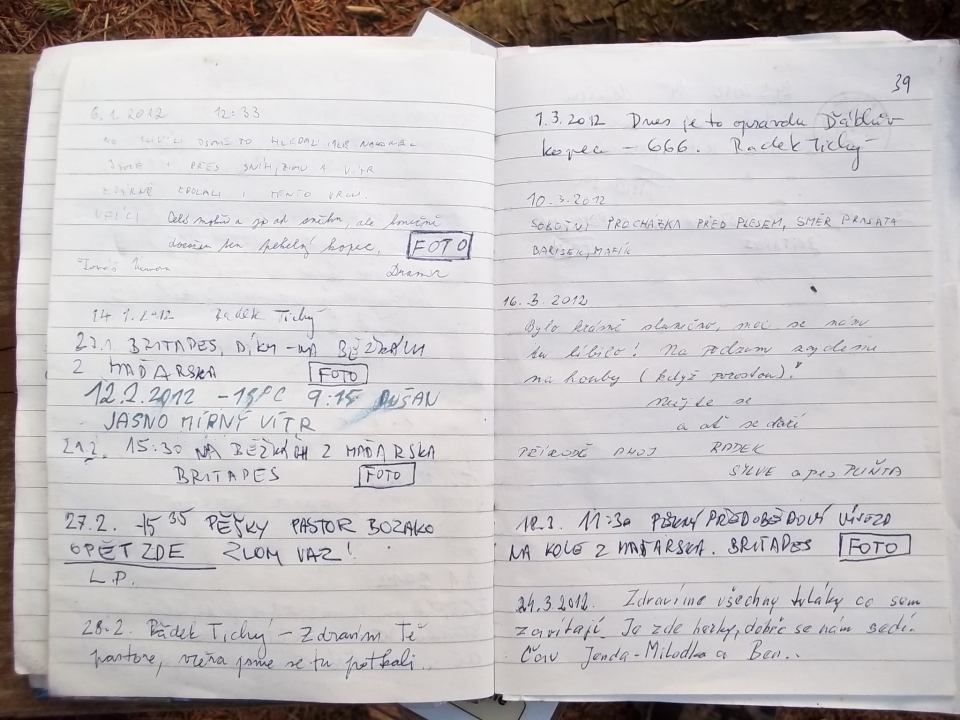 6.1.2012 12:33
JSME TO HLEDALI, ALE NAKONEC
JSME I PŘES SNÍH, ZIMU A VÍTR
ZDOLALI I TENTO VRCH.
Celé mokré a jo od sněhu, ale konečně
pekelný kopec. FOTO
Tomáš
14.1.2012 Radek Tichý
27.1 BRITAPES, DÍKY - NA BĚŽKÁCH
Z MAĎARSKA FOTO
12.2.2012 -15°C 9:15 DUŠAN
JASNO MÍRNÝ VÍTR
21.2. 15:30 NA BĚŽKÁCH Z MAĎARSKA
BRITAPES FOTO
27.2. 15 35 PĚŠKY PASTOR BOZAKO
OPĚT ZDE ZLOM VAZ!
L.P.
28.2. Radek Tichý - Zdravím Tě
pastore, včera jsme se tu potkali..
39
1.3.2012 Dnes je to opravdu Ďáblův
kopec - 666. Radek Tichý
10.3.2012
SOBOTNÍ PROCHÁZKA PŘED PLESEM, SMĚR PRASATA
BARTSEK, MAFIK
16.3.2012
Bylo krásně slunečno, moc se nám
tu líbilo! Na podzim zajdeme
na houby (když porostou).
Mějte se
a ať se daří
PŘÍRODĚ AHOJ RADEK
SYLVE a pes PLIŇTA
18.3. 11:30 PĚKNÝ PŘEDOBĚDOVÝ VÝJEZD
NA KOLE Z MAĎARSKA. BRITAPES FOTO
24.3.2012. Zdravíme všechny tuláky co sem
zavítají. Je zde hezky, dobře se nám sedí.
Čau Jenda - Miladka a Ben..